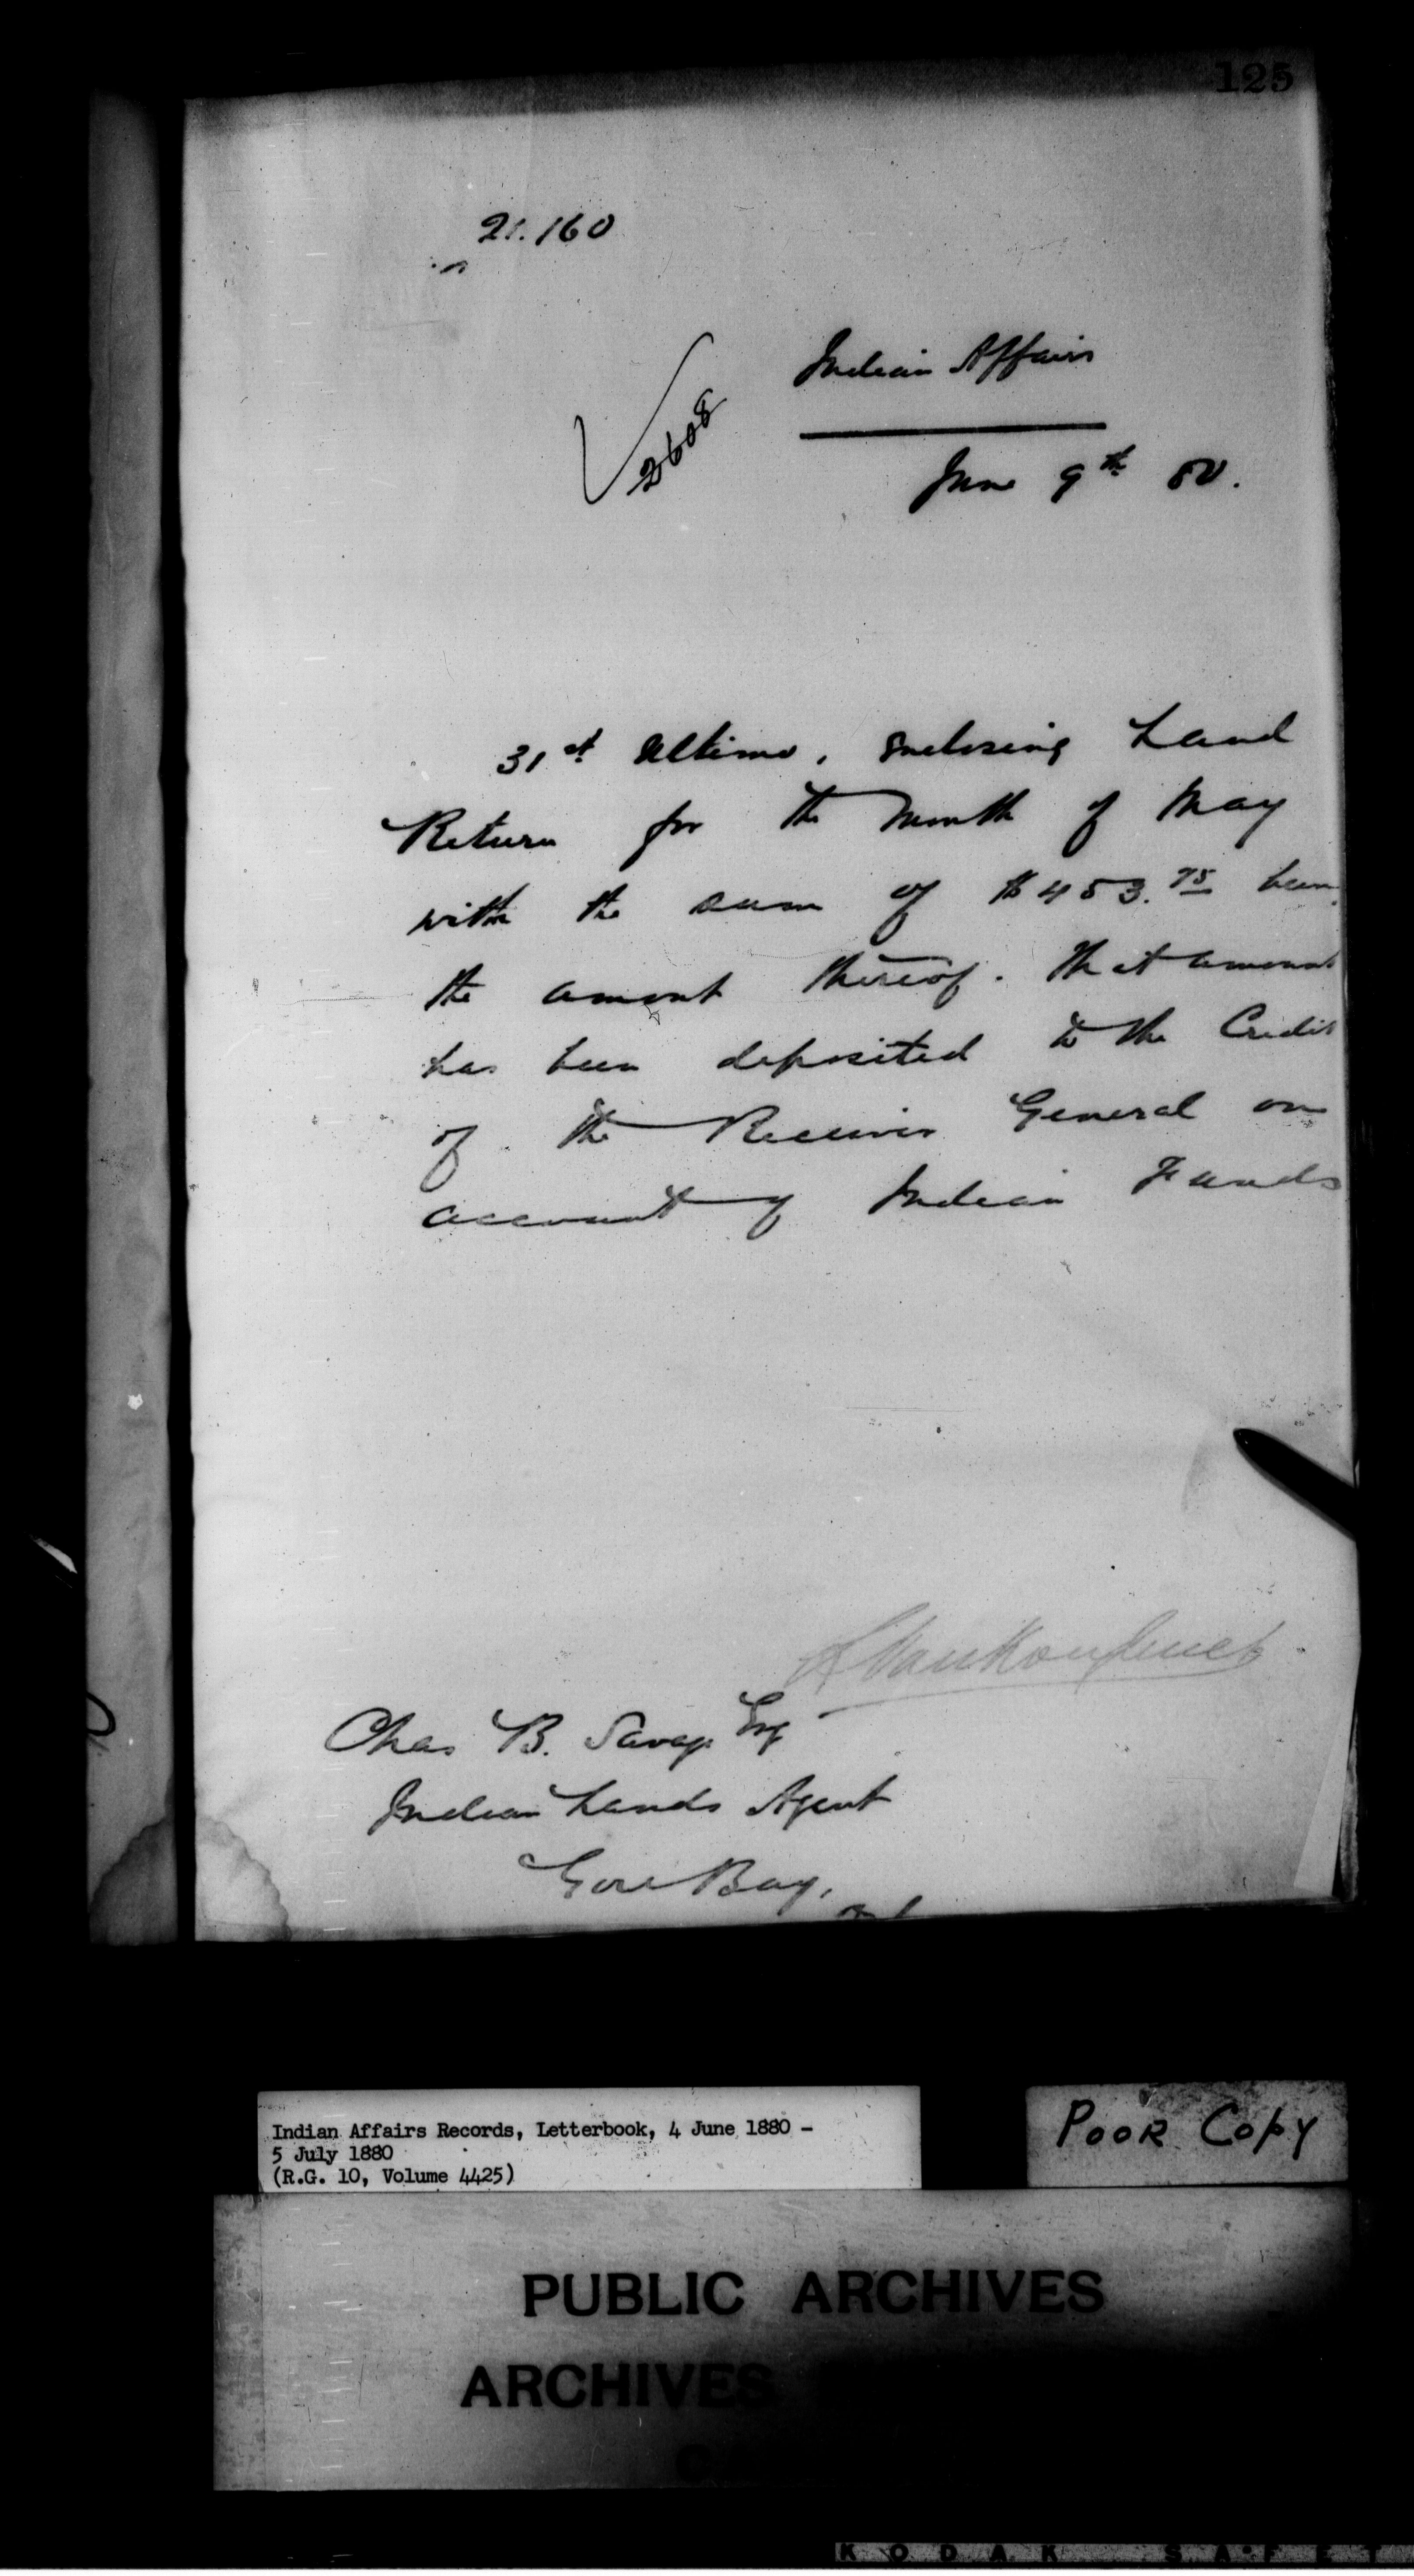 125
21.160
2608
Indian Affairs
June 9th 80.
31st Ultimo, enclosing Land
Return for the month of May
with the sum of $453.75 been
the amount thereof. That amount
has been deposited to the Credit
of the Receiver General on
account of Indian Funds
L Vankoughnet
Chas B. Savage Esq
Indian Lands Agent
Gore Bay,
Indian Affairs Records, Letterbook, 4 June 1880 -
5 July 1880
(R.G. 10, Volume 4425)
POOR COPY
PUBLIC ARCHIVES
ARCHIVES
KODAK SAFET